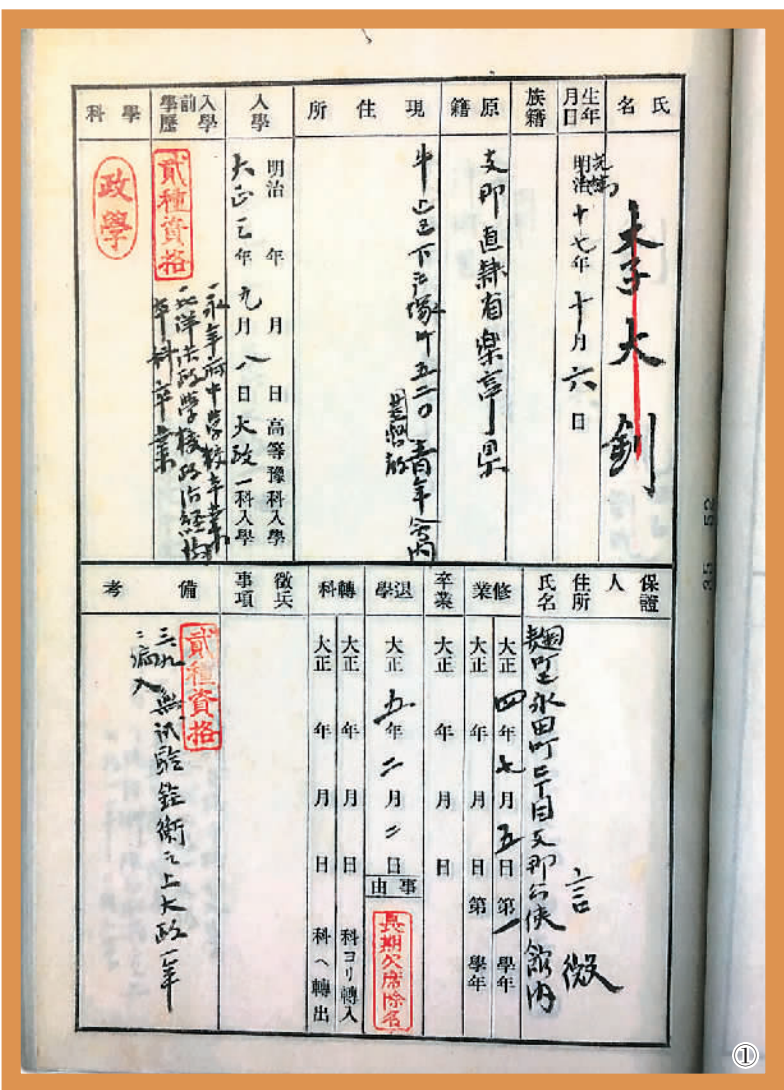 氏名
李大釗
生年月日
光緒
明治十七年十月六日
族籍
原籍
支那直隸省樂亭県
現住所
牛込区下戸塚町五二〇
青年会内
入學
明治 年 月 日高等豫科入學
大正三年九月八日大政一科入學
入學前學歷
貳種資格
一永年府中學校卒業
一北洋法政学校政治経済
本科卒業
學科
政學
保證人住所氏名
麹町区永田町二丁目支那公使館内
言微
修業
大正四年七月五日第一學年
大正 年 月 日第 學年
卒業
大正 年 月 日
退學
大正五年二月二日
事由
長期欠席除名
轉科
大正 年 月 日 科ヨリ轉入
大正 年 月 日 科へ轉出
徵兵事項
備考
貳種資格
三、九、無試驗銓衡之上大政一年
ニ編入
35 52
①